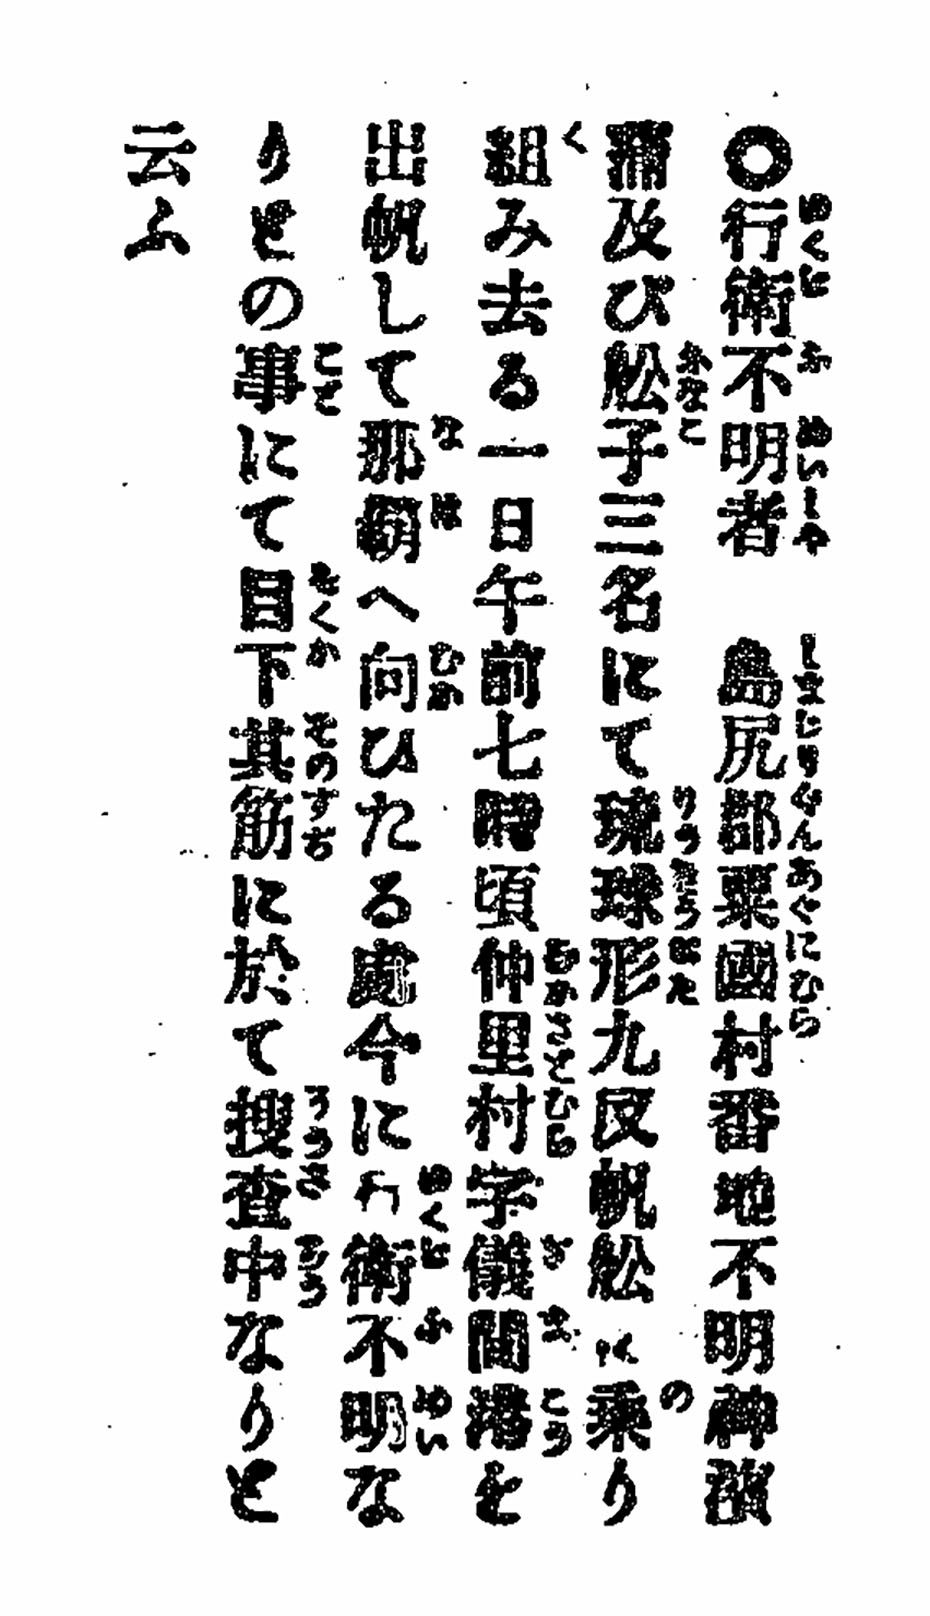 ○行衛不明者　島尻郡粟國村番地不明神濱
蒲及び舩子三名にて琉球形九反帆舩に乘り
組み去る一日午前七時頃仲里村字儀間港を
出帆して那覇へ向ひたる處今に行衛不明な
りとの事にて目下其筋に於て捜査中なりと
云ふ